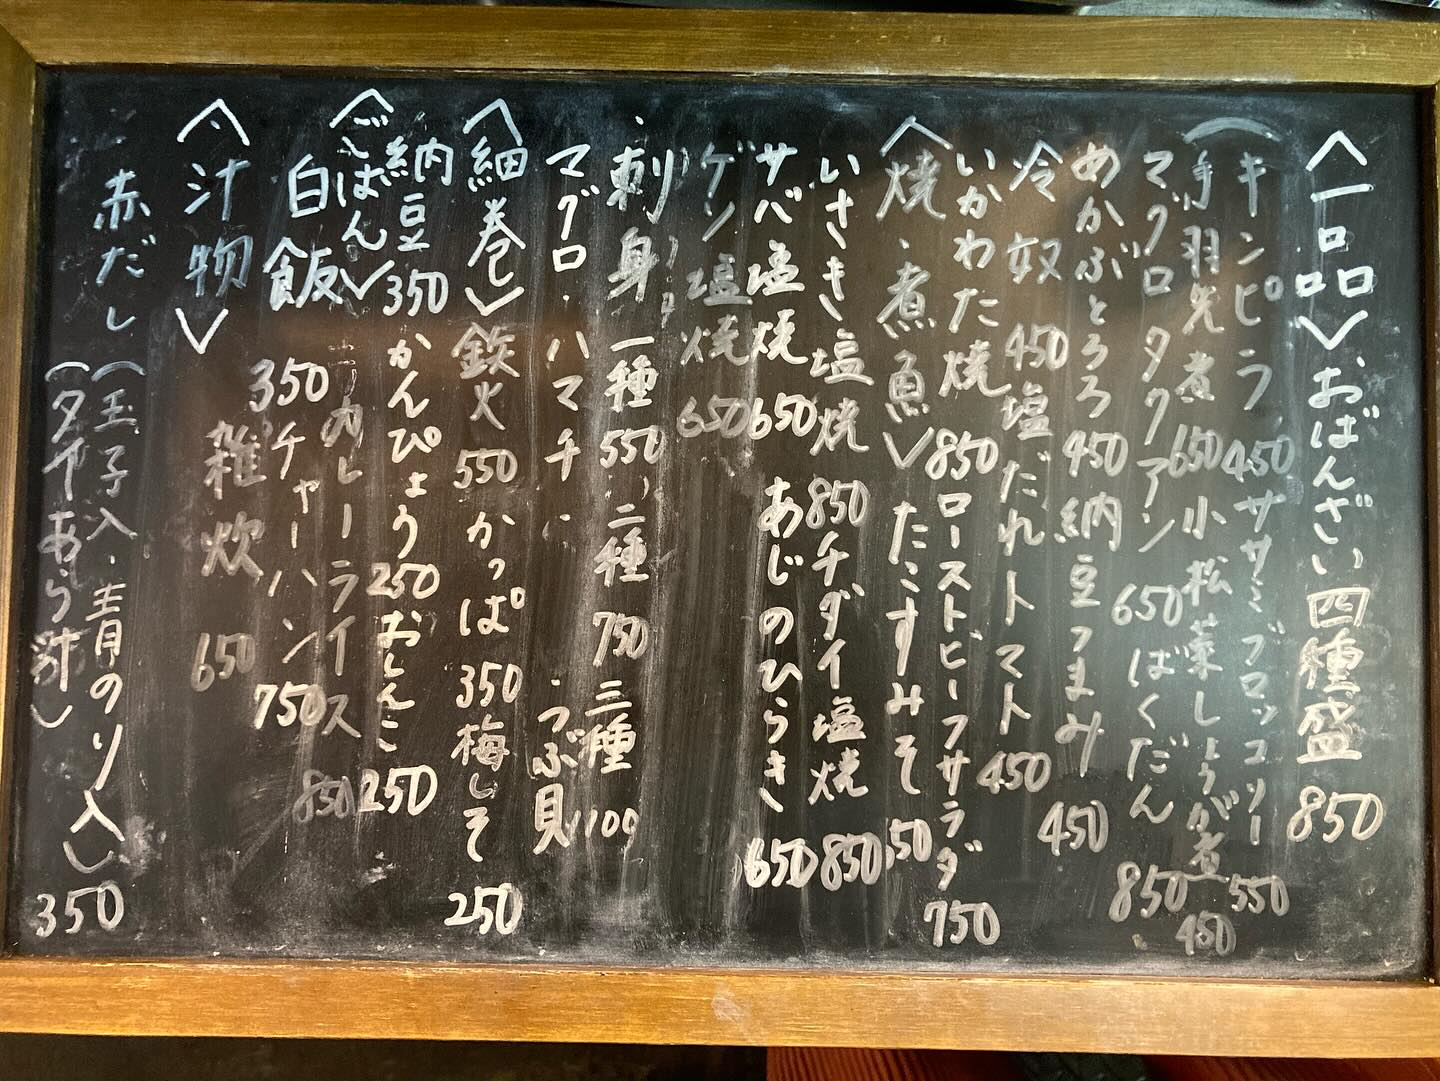 〈一品〉おばんざい四種盛 850
キンピラ 450 ササミブロッコリー 550
手羽先煮 650 小松菜しょうが煮 450
マグロタクアン 650 ばくだん 850
めかぶとろろ 450 納豆つまみ 450
冷奴 450 塩だれトマト 450
いかわた焼 850 ローストビーフサラダ 750
〈焼・煮魚〉たこすみそ
いさき塩焼 850 チダイ塩焼 850
サバ塩焼 650 あじのひらき 650
ゲソ塩焼 650
刺身 一種 550 二種 750 三種 1100
マグロ・ハマチ・つぶ貝
〈細巻〉鉄火 550 かっぱ 350 梅しそ 250
納豆 350 かんぴょう 250 おしんこ 250
〈ごはん〉カレーライス 850
白飯 350 チャーハン 750
雑炊 650
〈汁物〉
赤だし（玉子入・青のり入）
（タイあら汁） 350